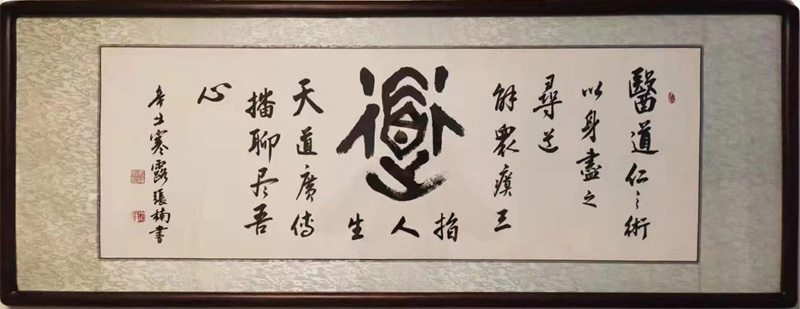 醫道仁之術
以身盡之
尋道
解眾瘼三
指人生
道
天道廣傳
播聊尽吾
心
辛丑寒露張楠書